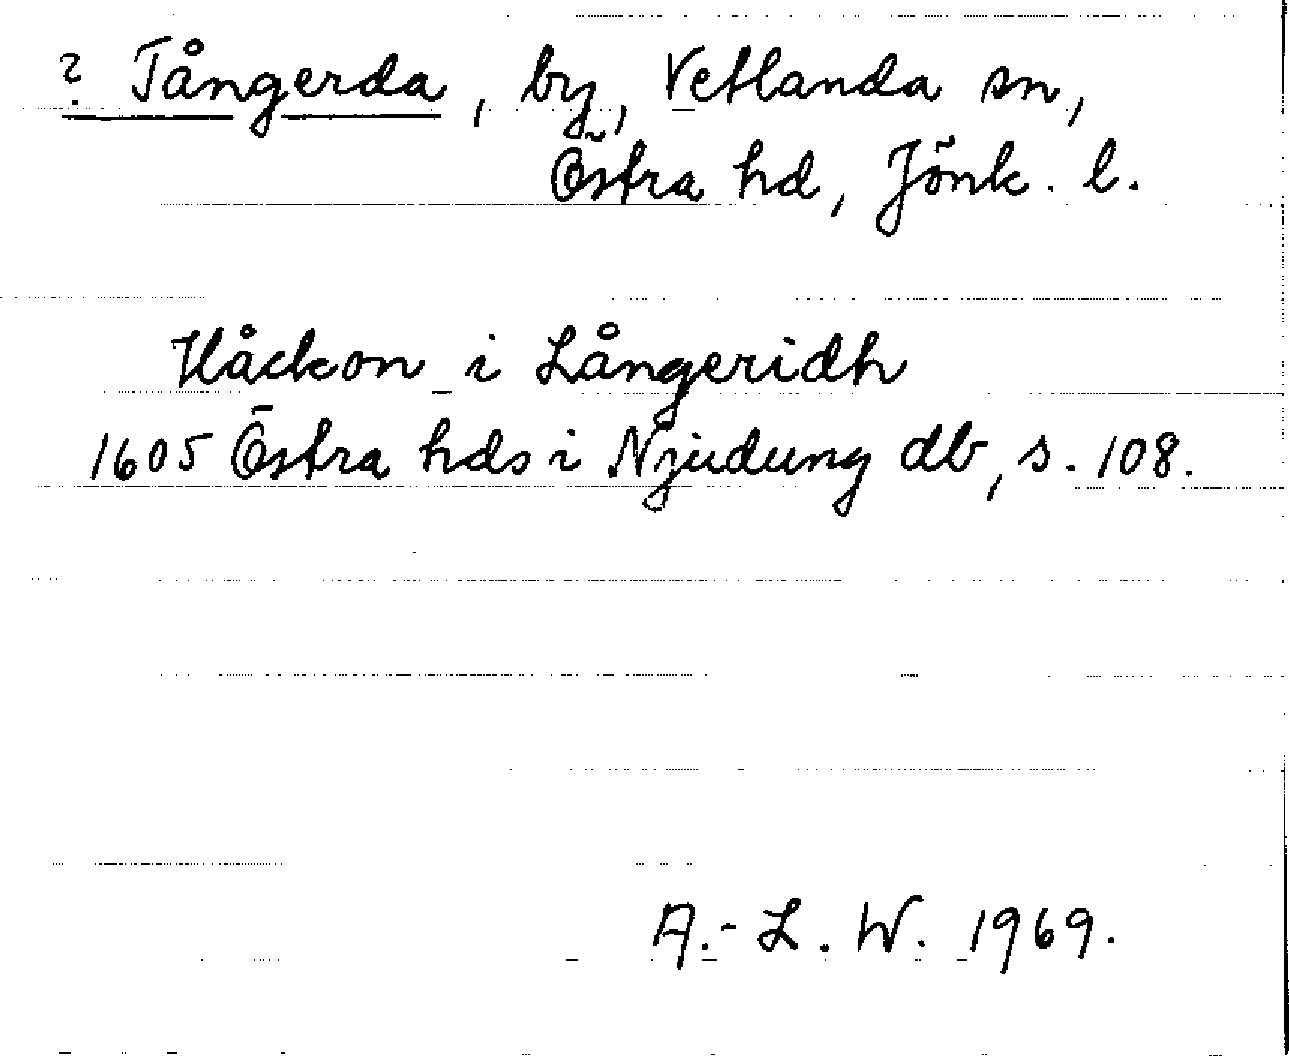 ? Tångerda, by, Vetlanda sn,
Östra hd, Jönk. l.
Håckon i Långeridh
1605 Östra hds i Njudung db, s. 108.
A.-L. W. 1969.